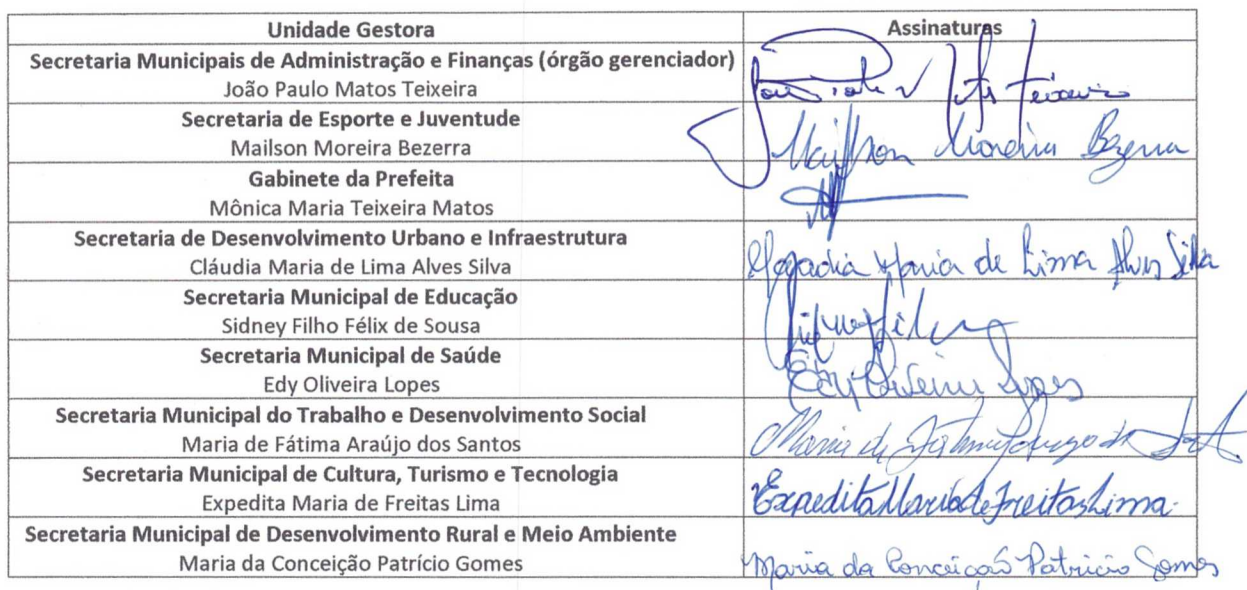 Unidade Gestora
Assinaturas
Secretaria Municipais de Administração e Finanças (órgão gerenciador)
João Paulo Matos Teixeira
Teixeira
Secretaria de Esporte e Juventude
Mailson Moreira Bezerra
Mailson Moreira Bezerra
Gabinete da Prefeita
Mônica Maria Teixeira Matos
Secretaria de Desenvolvimento Urbano e Infraestrutura
Cláudia Maria de Lima Alves Silva
Maria de Lima Alves Silva
Secretaria Municipal de Educação
Sidney Filho Félix de Sousa
Secretaria Municipal de Saúde
Edy Oliveira Lopes
Edy Oliveira Lopes
Secretaria Municipal do Trabalho e Desenvolvimento Social
Maria de Fátima Araújo dos Santos
Maria de Fatima Araujo
Secretaria Municipal de Cultura, Turismo e Tecnologia
Expedita Maria de Freitas Lima
Expedita Maria de Freitas Lima
Secretaria Municipal de Desenvolvimento Rural e Meio Ambiente
Maria da Conceição Patrício Gomes
Maria da Conceição Patricio Gomes